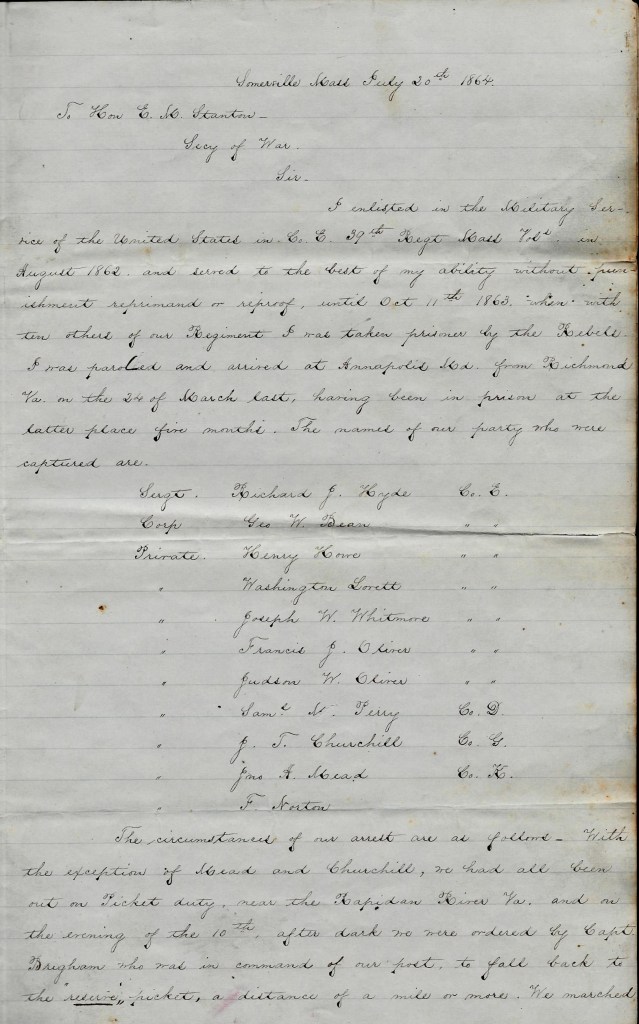 Somerville Mass July 20th 1864.
To Hon E. M. Stanton -
Secy of War.
Sir.
I enlisted in the Military Ser-
vice of the United States in Co. E. 39th Regt Mass Vols. in
August 1862. and served to the best of my ability without pun-
ishment reprimand or reproof, until Oct 11th 1863. when with
ten others of our Regiment I was taken prisoner by the Rebels.
I was paroled and arrived at Annapolis Md. from Richmond
Va. on the 24 of March last, having been in prison at the
latter place five months. The names of our party who were
captured are.
Sergt. Richard J. Hyde Co. E.
Corp Geo W. Bean " "
Private. Henry Howe " "
" Washington Lovett " "
" Joseph W. Whitmore " "
" Francis J. Oliver " "
" Judson W. Oliver " "
" Saml N. Perry Co. D.
" J. T. Churchill Co. G.
" Jno A. Mead Co. K.
" F. Norton
The circumstances of our arrest are as follows - With
the exception of Mead and Churchill, we had all been
out on Picket duty, near the Rapidan River Va. and on
the evening of the 10th, after dark we were ordered by Capt
Brigham who was in command of our post, to fall back to
the "reserve" picket, a distance of a mile or more. We marched